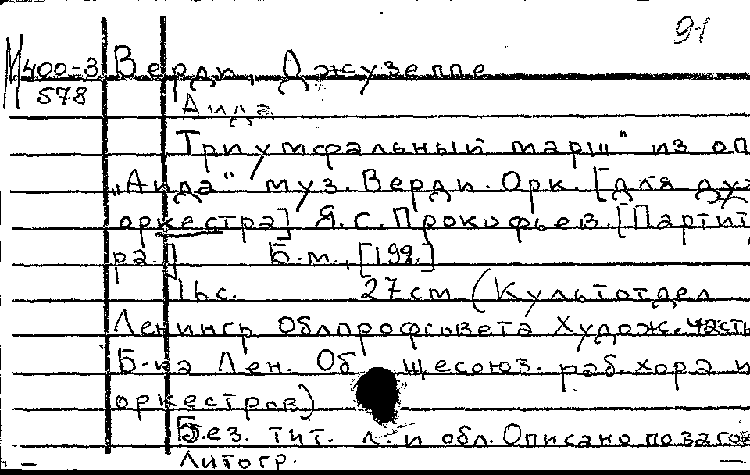 91
М 400-3 Верди, Джузеппе
578
Аида
Триумфальный марш" из оп
„Аида" муз. Верди. Орк. [для дух
оркестра] Я.С. Прокофьев. [Партит
ра.] Б.м., [19?.]
16 с. 27 см (Культотдел
Ленингр. Облпрофсовета Худож. часть
Б-ка Лен. Об щесоюз. раб. хора и
оркестров)
Без. тит. л. и обл. Описано по загол
Литогр.